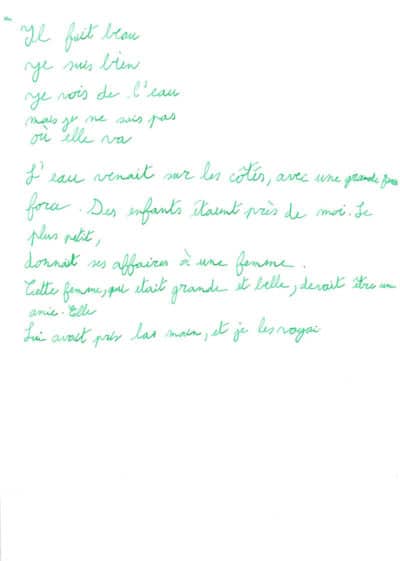 Il fait beau
je suis bien
je vois de l'eau
mais je ne sais pas
où elle va
L'eau venait sur les côtés, avec une grande
force. Des enfants étaient près de moi. Le
plus petit,
donnait ses affaires à une femme.
Cette femme, qui était grande et belle, devait être un
amie. Elle
lui avait pris las main, et je les voyai